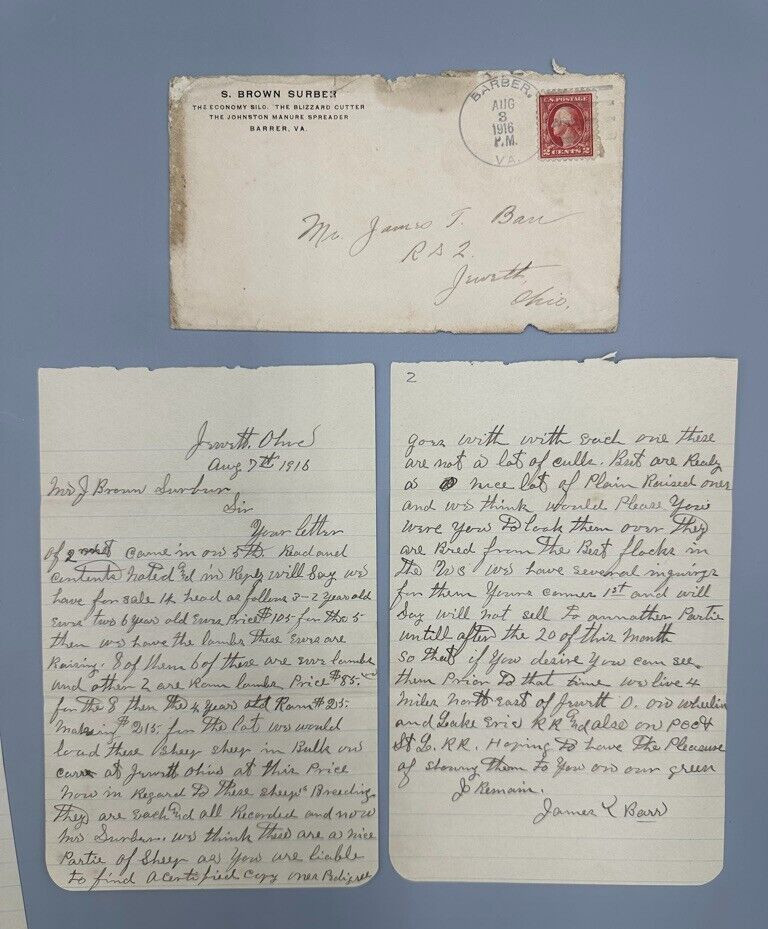 S. BROWN SURBER
THE ECONOMY SILO. THE BLIZZARD CUTTER
THE JOHNSTON MANURE SPREADER
BARBER, VA.
BARBER,
AUG
3
1916
P.M.
VA.
U.S. POSTAGE
2 CENTS 2
Mr. James T. Barr
R D 2.
Jewett,
Ohio.
Jewett. Ohio
Aug. 7th 1916
Mr J Brown Surbur
Sir
Your letter
of 2 came in on 5th Read and
contents noted in Reply will Say we
have for sale 14 head as follows 3-2 year old
Ewes two 6 year old Ewes Price $105 for the 5
then we have the lambs these Ewes are
Raising. 8 of them 6 of these are ewe lambs
and other 2 are Ram lambs Price $85.
for the 8 then the 4 year old Ram $25.
Making $215 for the lot we would
load these sheep sheep in Bulk on
cars at Jewett Ohio at this Price
Now in Regard to these sheeps Breeding
they are each all Recorded and now
Mr Surbur. we think these are a nice
Partie of Sheep as You are liable
to find a certified copy ones Pedigree
2
goes with with each one these
are not a lot of culls. But are Realy
a nice lot of Plain Raised ones
and we think would Please You
were You to look them over They
are Bred from the Best flocks in
the we have several inquirys
for them Yours comes 1st and will
Say will not sell to annather Partie
untill after the 20 of this Month
so that if You desire You can see
them Prior to that time we live 4
miles North east of Jewett O. on wheelin
and Lake Erie R R also on PCC &
St L. RR. Hoping to have the Pleasure
of showing them to You on our green
I Remain.
James Barr